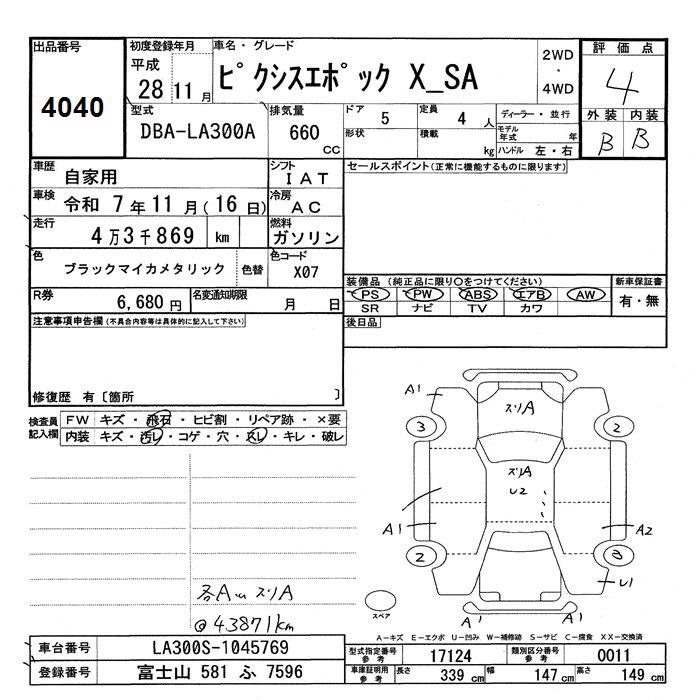 出品番号 初度登録年月 車名・グレード 2WD・4WD 評価点
4040 平成 28 11月 ピクシスエポック X_SA 4
型式 DBA-LA300A 排気量 660 cc ドア 5 定員 4 人 ディーラー・並行 外装 内装
形状 積載 kg モデル年式 年 ハンドル 左・右 B B
車歴 自家用 シフト IAT セールスポイント(正常に機能するものに限ります)
車検 令和 7年11月(16日) 冷房 AC
走行 4万3千869 km 燃料 ガソリン
色 ブラックマイカメタリック 色替 色コード X07 装備品(純正品に限り○をつけてください) 新車保証書
PS PW ABS エアB AW 有・無
R券 6,680円 名変通知期限 月 日 SR ナビ TV カワ
注意事項申告欄(不具合内容等は具体的に記入して下さい) 後日品
修復歴 有〔箇所 〕
検査員記入欄 FW キズ・飛石・ヒビ割・リペア跡・×要
内装 キズ・汚レ・コゲ・穴・スレ・キレ・破レ
A1
スリA
3 2
スリA
U2
A1 A2
2 3
U1
スペア
A1 A1
各Auスリ A
@43871km
A-キズ E-エクボ U-凹み W-補修跡 S-サビ C-腐食 XX-交換済
車台番号 LA300S-1045769 型式指定番号 参考 17124 類別区分番号 参考 0011
登録番号 富士山 581 ふ 7596 車庫証明用 参考 長さ 339 cm 幅 147 cm 高さ 149 cm